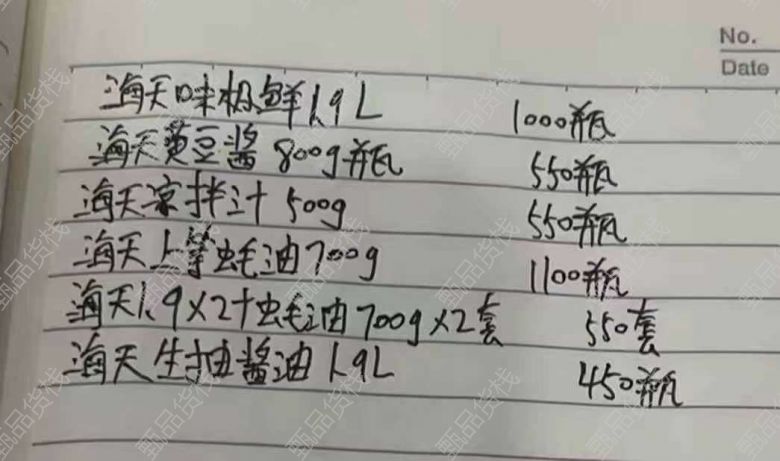 No.
Date
海天味极鲜1.9L 1000瓶
海天黄豆酱 800g瓶 550瓶
海天凉拌汁 500g 550瓶
海天上等蚝油700g 1100瓶
海天1.9×2+蚝油700g×2套 550套
海天生抽酱油 1.9L 450瓶
甄品货栈